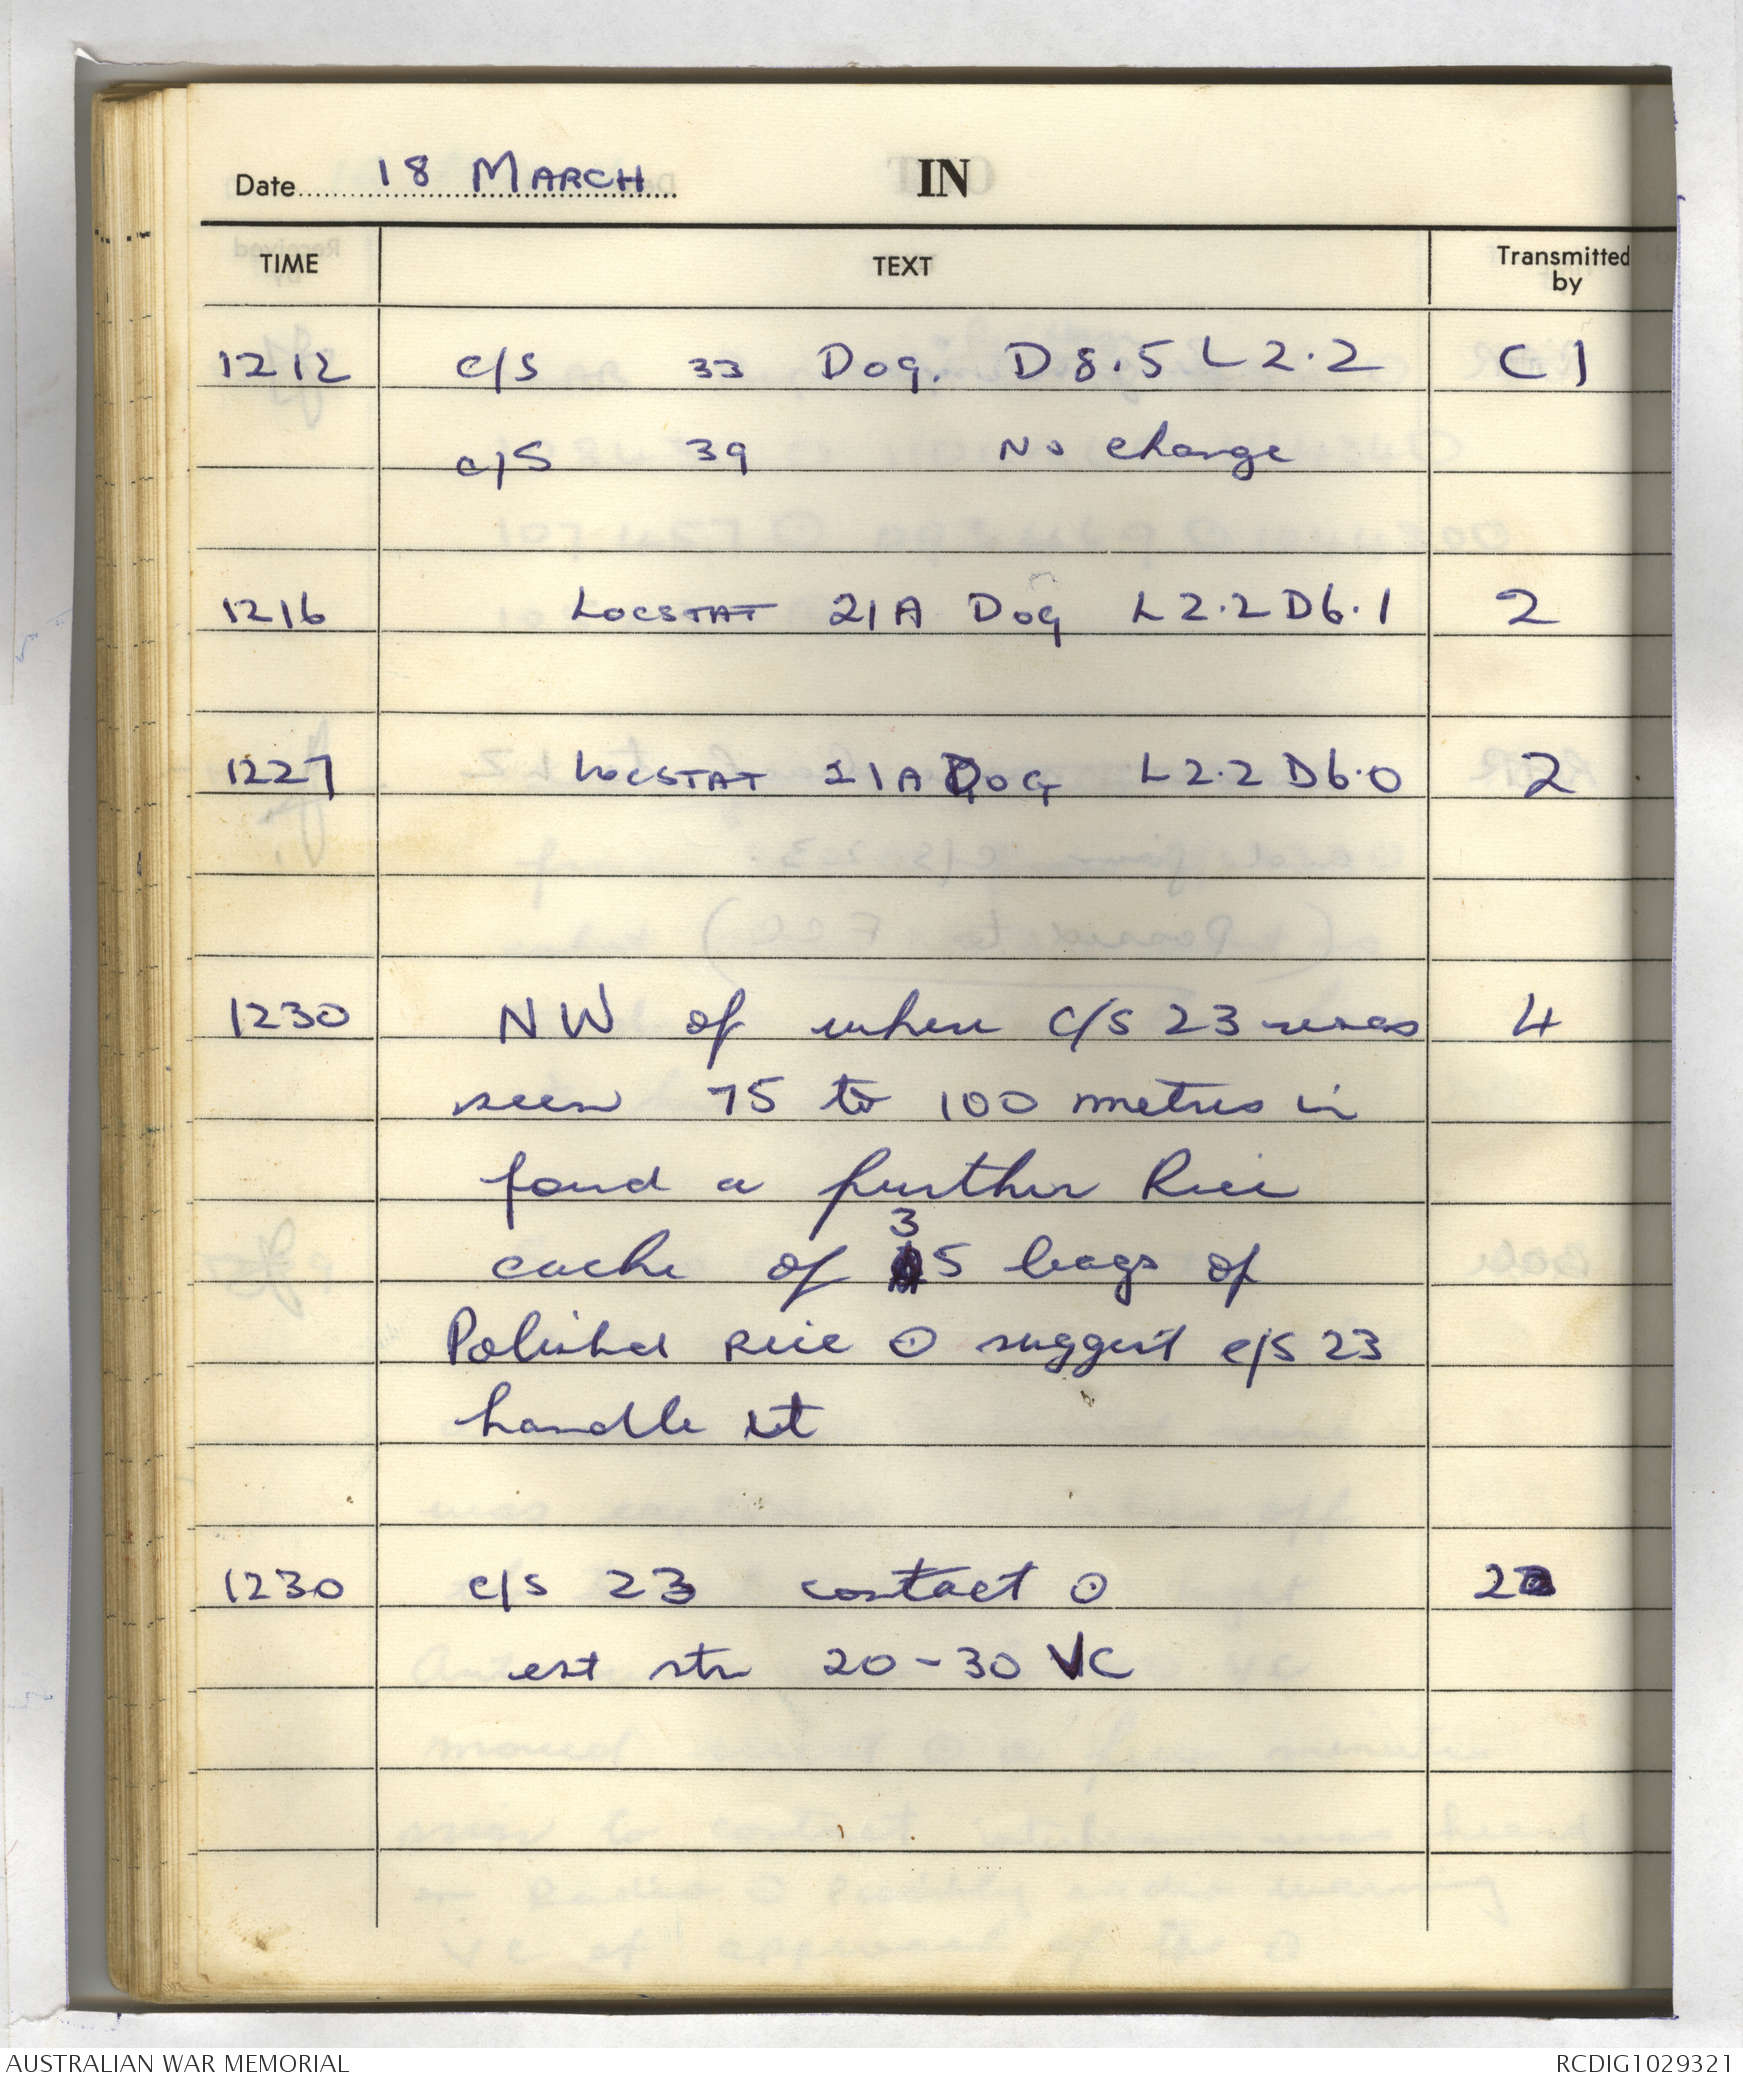 Date 18 MARCH IN
TIME TEXT Transmitted by
1212 c/s 33 Dog. D 8.5 L 2.2 C 1
c/s 39 No change
1216 LOCSTAT 21A Dog L 2.2 D 6.1 2
1227 LOCSTAT 21A DOG L 2.2 D 6.0 2
1230 NW of where c/s 23 was 4
seen 75 to 100 metres in
found a further Rice
cache of 35 bags of
Polished rice ⊙ suggest c/s 23
handle it
1230 c/s 23 contact ⊙ 2
est str 20-30 VC
AUSTRALIAN WAR MEMORIAL RCDIG1029321